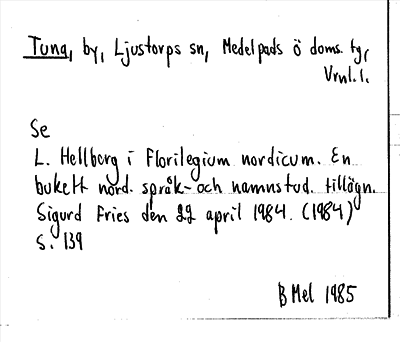 Tuna, by, Ljustorps sn, Medelpads ö doms. tg,
Vrnl. l.
Se
L. Hellberg i Florilegium nordicum. En
bukett nord. språk- och namnstud. tillägn.
Sigurd Fries den 22 april 1984. (1984)
S. 139
B Mel 1985